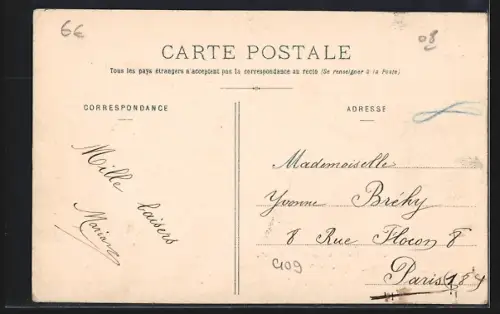 66
08
CARTE POSTALE
Tous les pays étrangers n'acceptent pas la correspondance au recto (Se renseigner à la Poste)
CORRESPONDANCE
Mille baisers
ADRESSE
Mademoiselle
Yvonne Bréhy
8 Rue Flocon 8
Paris